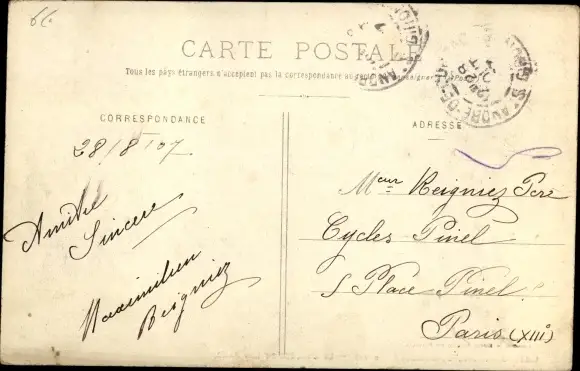 CARTE POSTALE
Tous les pays étrangers n'acceptent pas la correspondance au
CORRESPONDANCE
28/8/07
Amitié
Sincère
Maximilien
Reigniez
ADRESSE
Meur Reigniez Père
Cycles Pinel
5 Place Pinel
Paris (XIIIe)